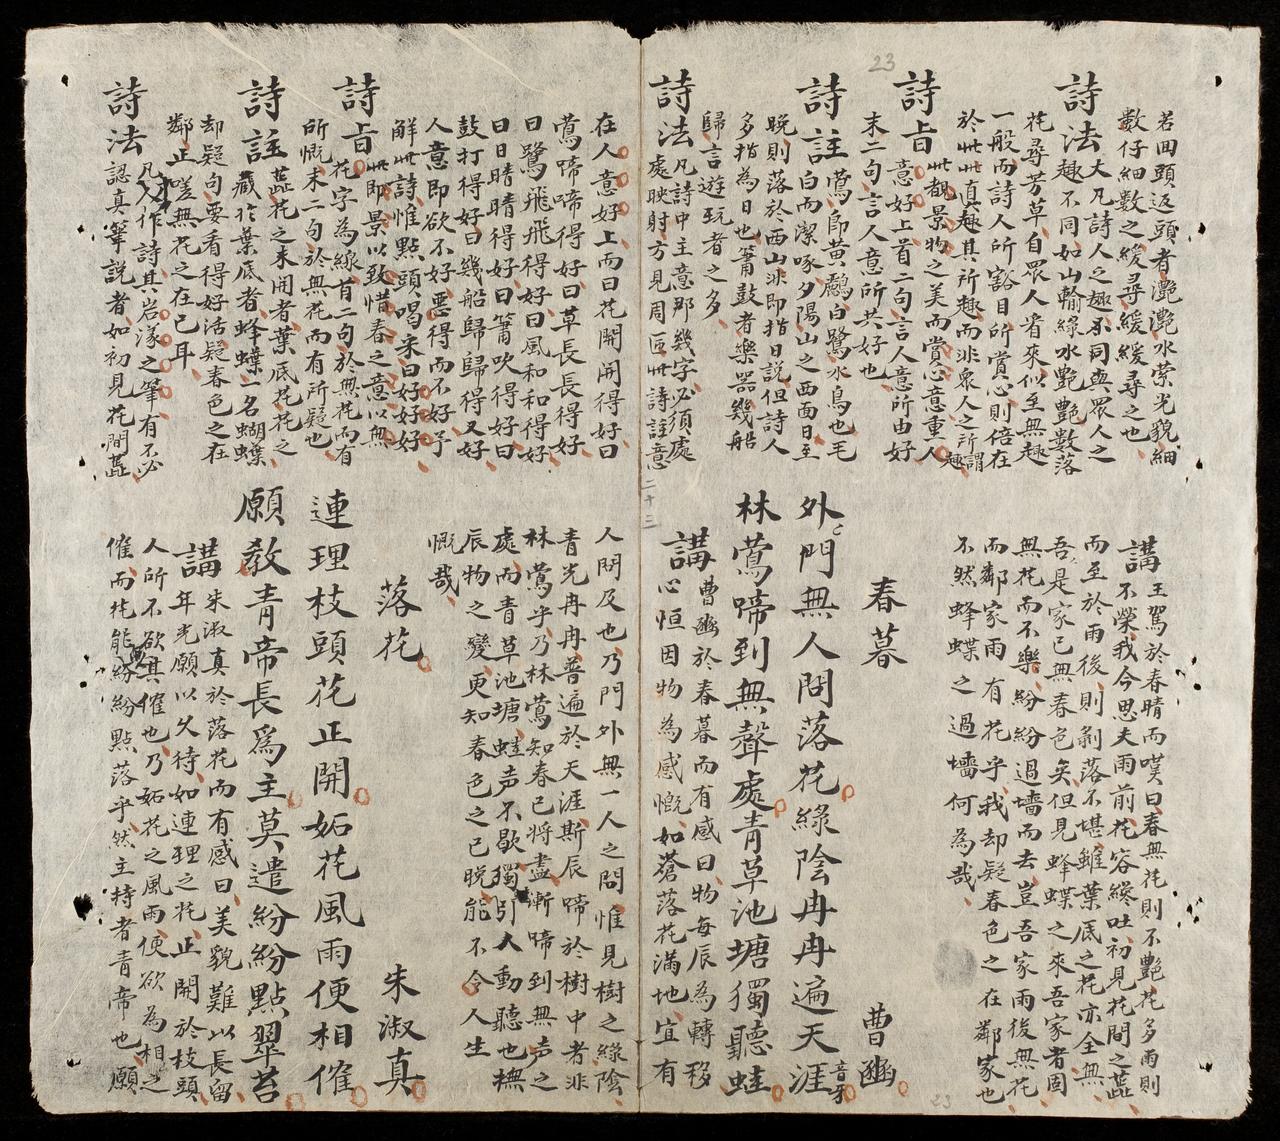 23
若回頭返頭者灩灩水縈光貌細
數仔細數之緩尋緩緩尋之也
詩法大凡詩人之趣不同與眾人之
趣不同如山輸綠水艷艷數落
花尋芳草自眾人看來似至無趣
一般而詩人所豁目所賞心則倍在
於此此真趣其所趣而非衆人之所謂趣
詩旨此覩景物之美而賞心意重人
意好上首二句言人意所由好
末二句言人意所共好也
詩註鶯即黃鸝白鷺水鳥也毛
白而潔啄夕陽山之西面日至
晚則落於西山非即指日説但詩人
多指為日也簫鼓者樂器幾船
歸言遊玩者之多
詩法凡詩中主意那幾字必須處
處映射方見周匝此詩註意
講王駕於春晴而嘆曰春無花則不艷花多雨則
不榮我今思夫雨前花容纔吐初見花間之蕋
而至於雨後則剝落不堪雖葉底之花亦全無
吾是家已無春色矣但見蜂蝶之來吾家者因
無花而不樂紛紛過墻而去豈吾家雨後無花
而鄰家雨有花乎我却疑春色之在鄰家也
不然蜂蝶之過墻何為哉
春暮 曹豳
外門無人問落花綠陰冉冉遍天涯音牙
林鶯啼到無聲處青草池塘獨聽蛙
講曹豳於春暮而有感曰物每辰為轉移
心恒因物為感慨如蒼落花滿地宜有
二十三
在人意好上而曰花開開得好曰
鶯啼啼得好曰草長長得好
曰鷺飛飛得好曰風和和得好
曰日晴晴得好曰簫吹得好曰
鼓打得好曰幾船歸歸得又好
人意即欲不好惡得而不好乎
解此詩惟點頭喝采曰好好好
詩旨此即景以致惜春之意以無
花字為線首二句於無花而有
所慨末二句於無花而有所疑也
詩註蕋花之未開者葉底花花之
藏於葉底者蜂蝶一名蝴蝶
却疑句要看得好活疑春色之在
鄰正嗟無花之在己耳
詩法凡人作詩其岩濛之筆有不必
認真筆説者如初見花間蕋
人問及也乃門外無一人之問惟見樹之綠陰
青光冉冉普遍於天涯斯辰啼於樹中者非
林鶯乎乃林鶯知春已將盡漸啼到無声之
處而青草池塘蛙声不歇獨引人動聽也撫
辰物之變更知春色之已晚能不令人生
慨哉
落花 朱淑真
連理枝頭花正開妬花風雨便相催
願教青帝長爲主莫遣紛紛點翠苔
講朱淑真於落花而有感曰美貌難以長留
年光願以久待如連理之花正開於枝頭
人所不欲其催也乃妬花之風雨便欲為相之
催而花能紛紛點落乎然主持者青帝也願
23